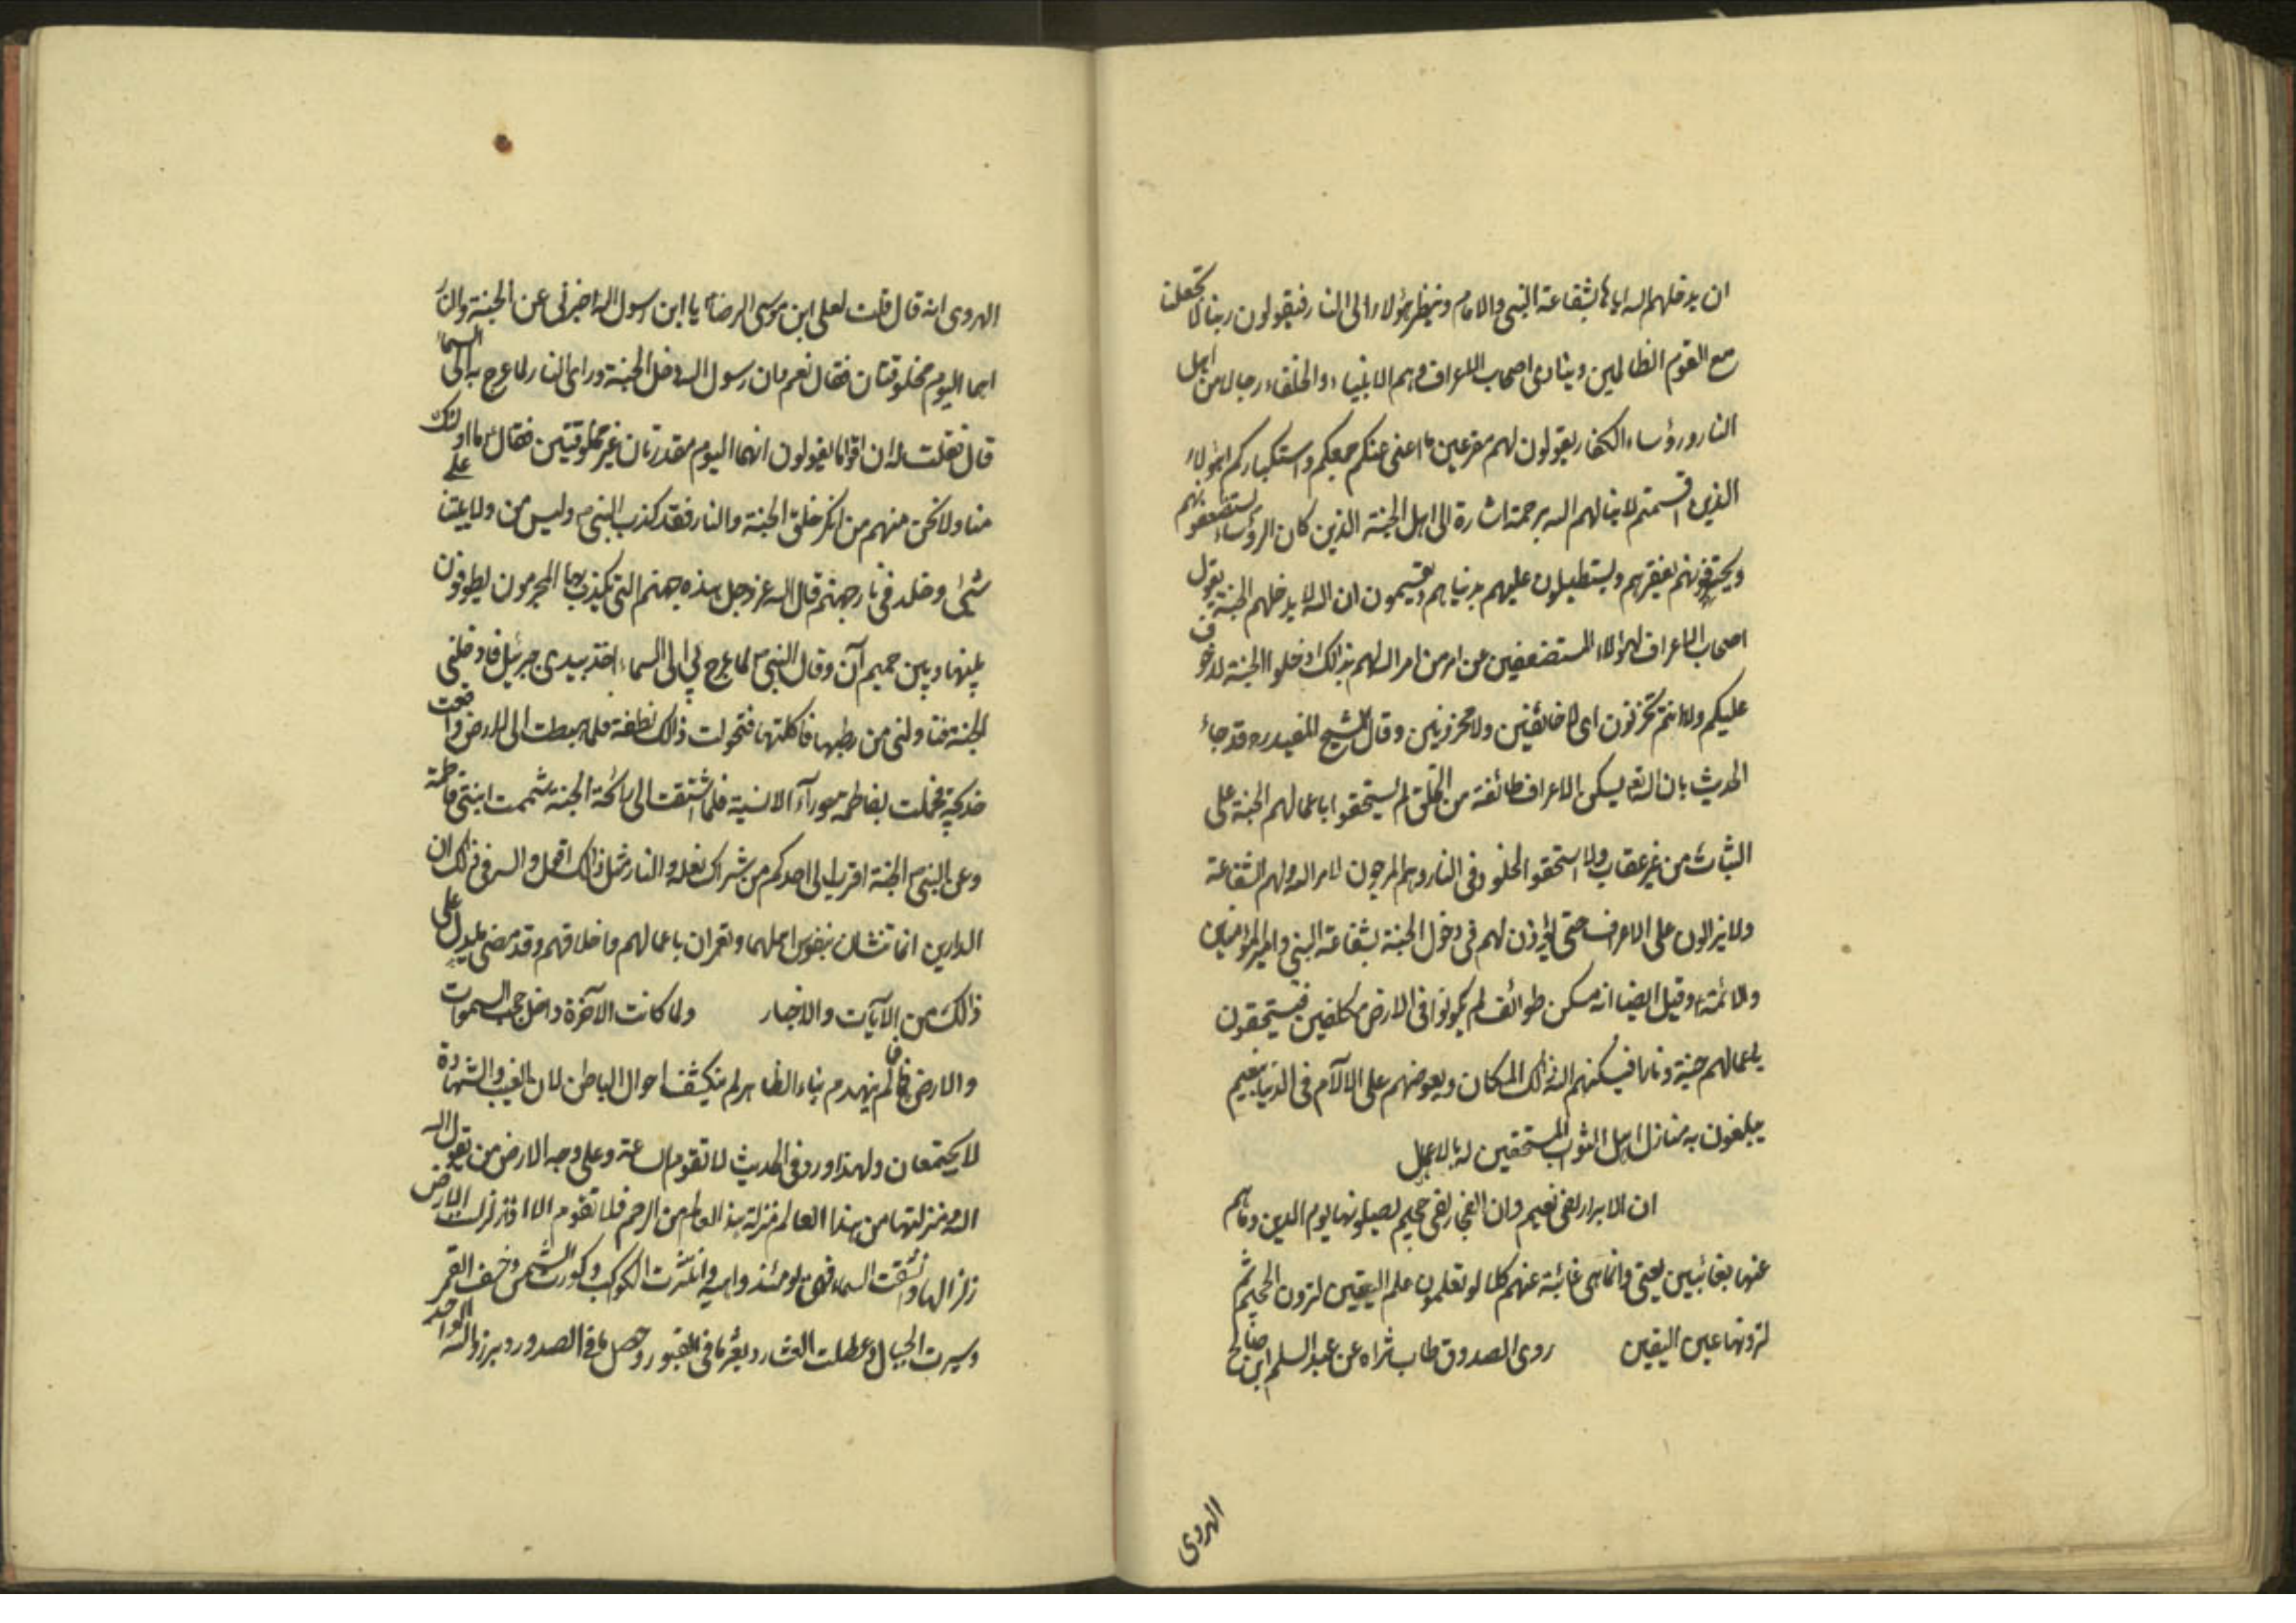 ان يدخلهم الله اياها بشفاعة النبي والامام وينظر هؤلاء الى النار فيقولون ربنا لا تجعلنا
مع القوم الظالمين وينادى اصحاب الاعراف وهم الانبياء والخلفاء رجالا من اهل
النار ورؤساء الكفار يقولون لهم مقرعين ما اغنى عنكم جمعكم واستكباركم اهؤلاء
الذين اقسمتم لا ينالهم الله برحمة اشارة الى اهل الجنة الذين كان الرؤساء يستضعفونهم
ويحتقرونهم بفقرهم ويستطيلون عليهم بدنياهم ويقسمون ان الله لا يدخلهم الجنة يقول
اصحاب الاعراف لهؤلاء المستضعفين عن امر من امر الله لهم بذالك ادخلوا الجنة لا خوف
عليكم ولا انتم تحزنون اى لا خائفين ولا محزونين وقال الشيخ المفيد ره وقد جاء
الحديث بان الله تع يسكن الاعراف طائفة من الخلق لم يستحقوا باعمالهم الجنة على
الثبات من غير عقاب ولا استحقوا الخلود فى النار وهم المرجون لامر الله ولهم الشفاعة
ولا يزالون على الاعراف حتى يؤذن لهم فى دخول الجنة بشفاعة النبي وامير المؤمنين
والائمة ع وقيل ايضا انه مسكن طوائف لم يكونوا فى الارض مكلفين فيستحقون
باعمالهم جنة ونارا فيسكنهم الله ذالك المكان ويعوضهم على الالآم فى الدنيا بنعيم
يبلغون به منازل اهل الثواب المستحقين له بالاعمال
ان الابرار لفى نعيم وان الفجار لفى جحيم يصلونها يوم الدين وما هم
عنها بغائبين يعنى وانما هى غائبة عنهم كلا لو تعلمون علم اليقين لترون الجحيم ثم
لترونها عين اليقين روى الصدوق طاب ثراه عن عبد السلم ابن صالح
الهروى
الهروى انه قال قلت لعلى ابن موسى الرضا ع يا ابن رسول الله اخبرنى عن الجنة والنار
اهما اليوم مخلوقتان فقال نعم وان رسول الله دخل الجنة وراى النار لما عرج به الى السماء
قال فقلت له ان اقواما يقولون انهما اليوم مقدرتان غير مخلوقتين فقال ع ما اولئك
منا ولا نحن منهم من انكر خلق الجنة والنار فقد كذب النبي ص وليس من ولايتنا على
شئ وخلد فى نار جهنم قال الله عز وجل هذه جهنم التى يكذب بها المجرمون يطوفون
بينها وبين حميم آن وقال النبي ص لما عرج بى الى السماء اخذ بيدى جبرئيل فادخلنى
الجنة فناولنى من رطبها فاكلتها فتحولت ذالك نطفة فلما هبطت الى الارض واقعت
خديجة فحملت بفاطمة حورآء الانسية فلما اشتقت الى رائحة الجنة شممت ابنتى فاطمة
وعن النبي ص الجنة اقرب الى احدكم من شراك نعله والنار مثل ذالك اقول والسر فى ذالك ان
الدارين انما تنشان بنفوس اهلهما وتعمران باعمالهم واخلاقهم وقد مضى ما يدل على
ذالك من الآيات والاخبار ولما كانت الآخرة داخل حجب السموات
والارض فما لم ينهدم بناء الظاهر لم ينكشف احوال الباطن لان الغيب والشهادة
لا يجتمعان ولهذا ورد فى الحديث لا تقوم الساعة وعلى وجه الارض من يقول الله
الله ومنزلتها من هذا العالم منزلة هذا العالم من الرحم فلا تقوم الا اذا زلزلت الارض
زلزالها وانشقت السماء فهى يومئذ واهية وانتثرت الكواكب وكورت الشمس وخسف القمر
وسيرت الجبال وعطلت العشار وبعثر ما فى القبور وحصل ما فى الصدور وبرزوا لله الواحد